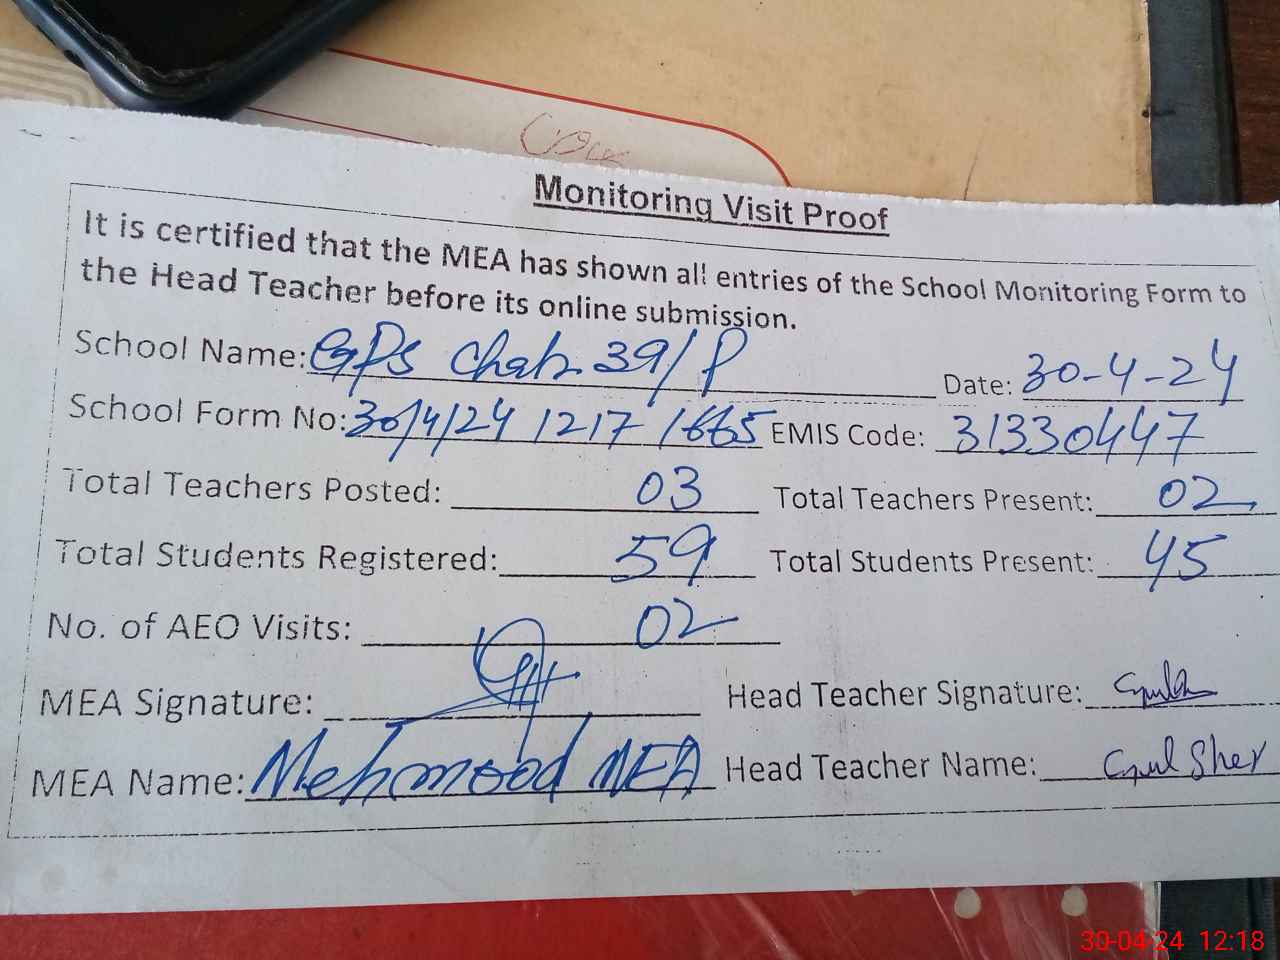 Monitoring Visit Proof
It is certified that the MEA has shown all entries of the School Monitoring Form to
the Head Teacher before its online submission.
School Name: GPS Chak 39/P Date: 30-4-24
School Form No: 30/4/24 1217 1665 EMIS Code: 31330447
Total Teachers Posted: 03 Total Teachers Present: 02
Total Students Registered: 59 Total Students Present: 45
No. of AEO Visits: 02
MEA Signature: Head Teacher Signature:
MEA Name: Mehmood MEA Head Teacher Name: Gul Sher
30-04-24 12:18